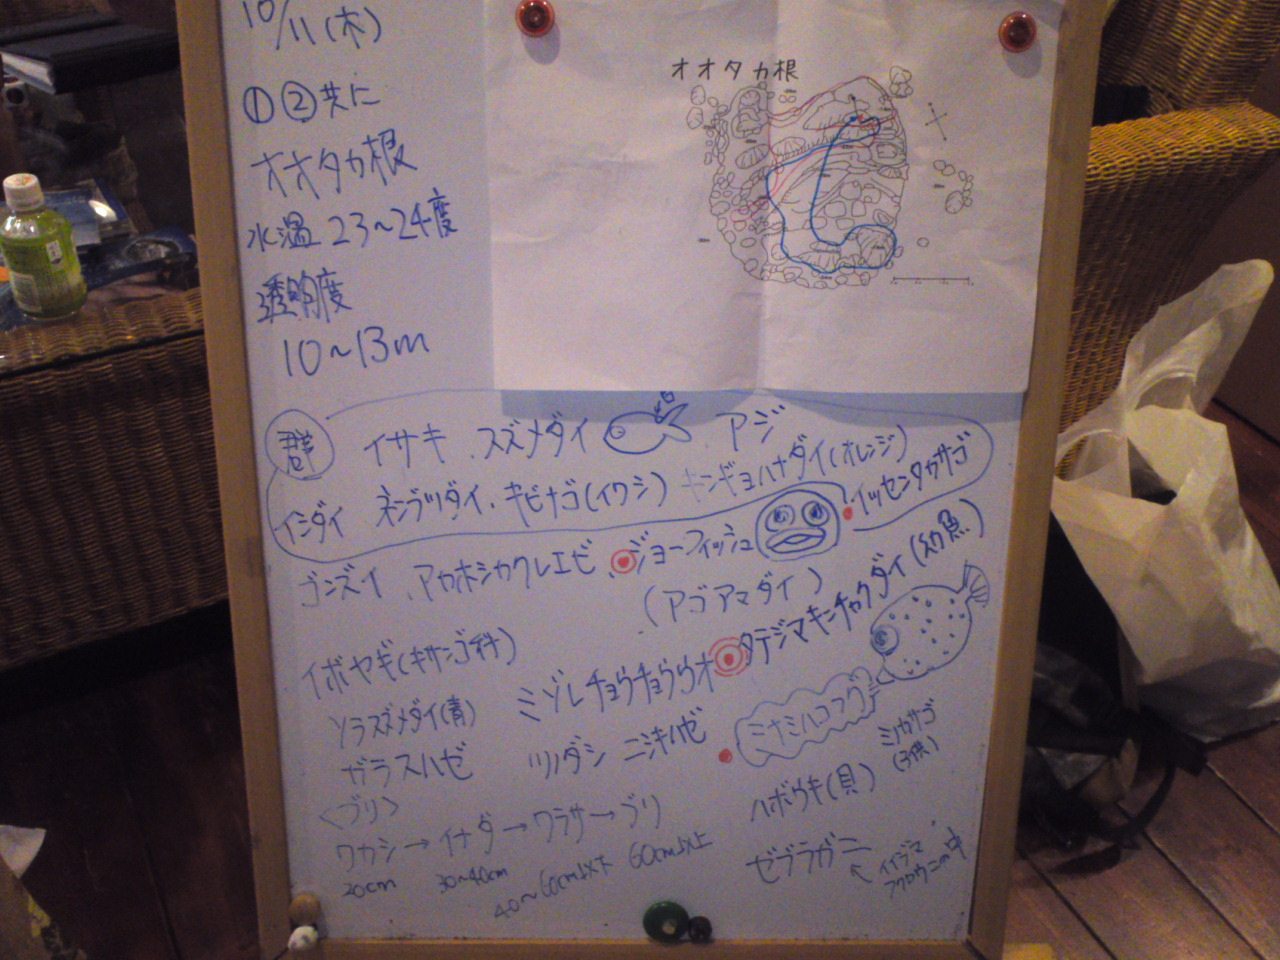 10/11(木)
①②共に
オオタカ根
水温 23~24度
透明度
10~13m
オオタカ根
群 イサキ、スズメダイ、アジ
イシダイ ネンブツダイ、キビナゴ(イワシ) キンギョハナダイ(オレンジ) イッセンタカサゴ
ゴンズイ、アカホシカクレエビ、ジョーフィッシュ
(アゴアマダイ)
イボヤギ(キサンゴ科) ミゾレチョウチョウウオ タテジマキンチャクダイ(幼魚)
ソラスズメダイ(青) ツノダシ ニシキハゼ ミナミハコフグ
ガラスハゼ ハボウキ(貝) ミノカサゴ
(子供)
<ブリ>
ワカシ→イナダ→ワラサ→ブリ
20cm 30~40cm 40~60cm以下 60cm以上
ゼブラガニ ← イイジマ
フクロウニの中